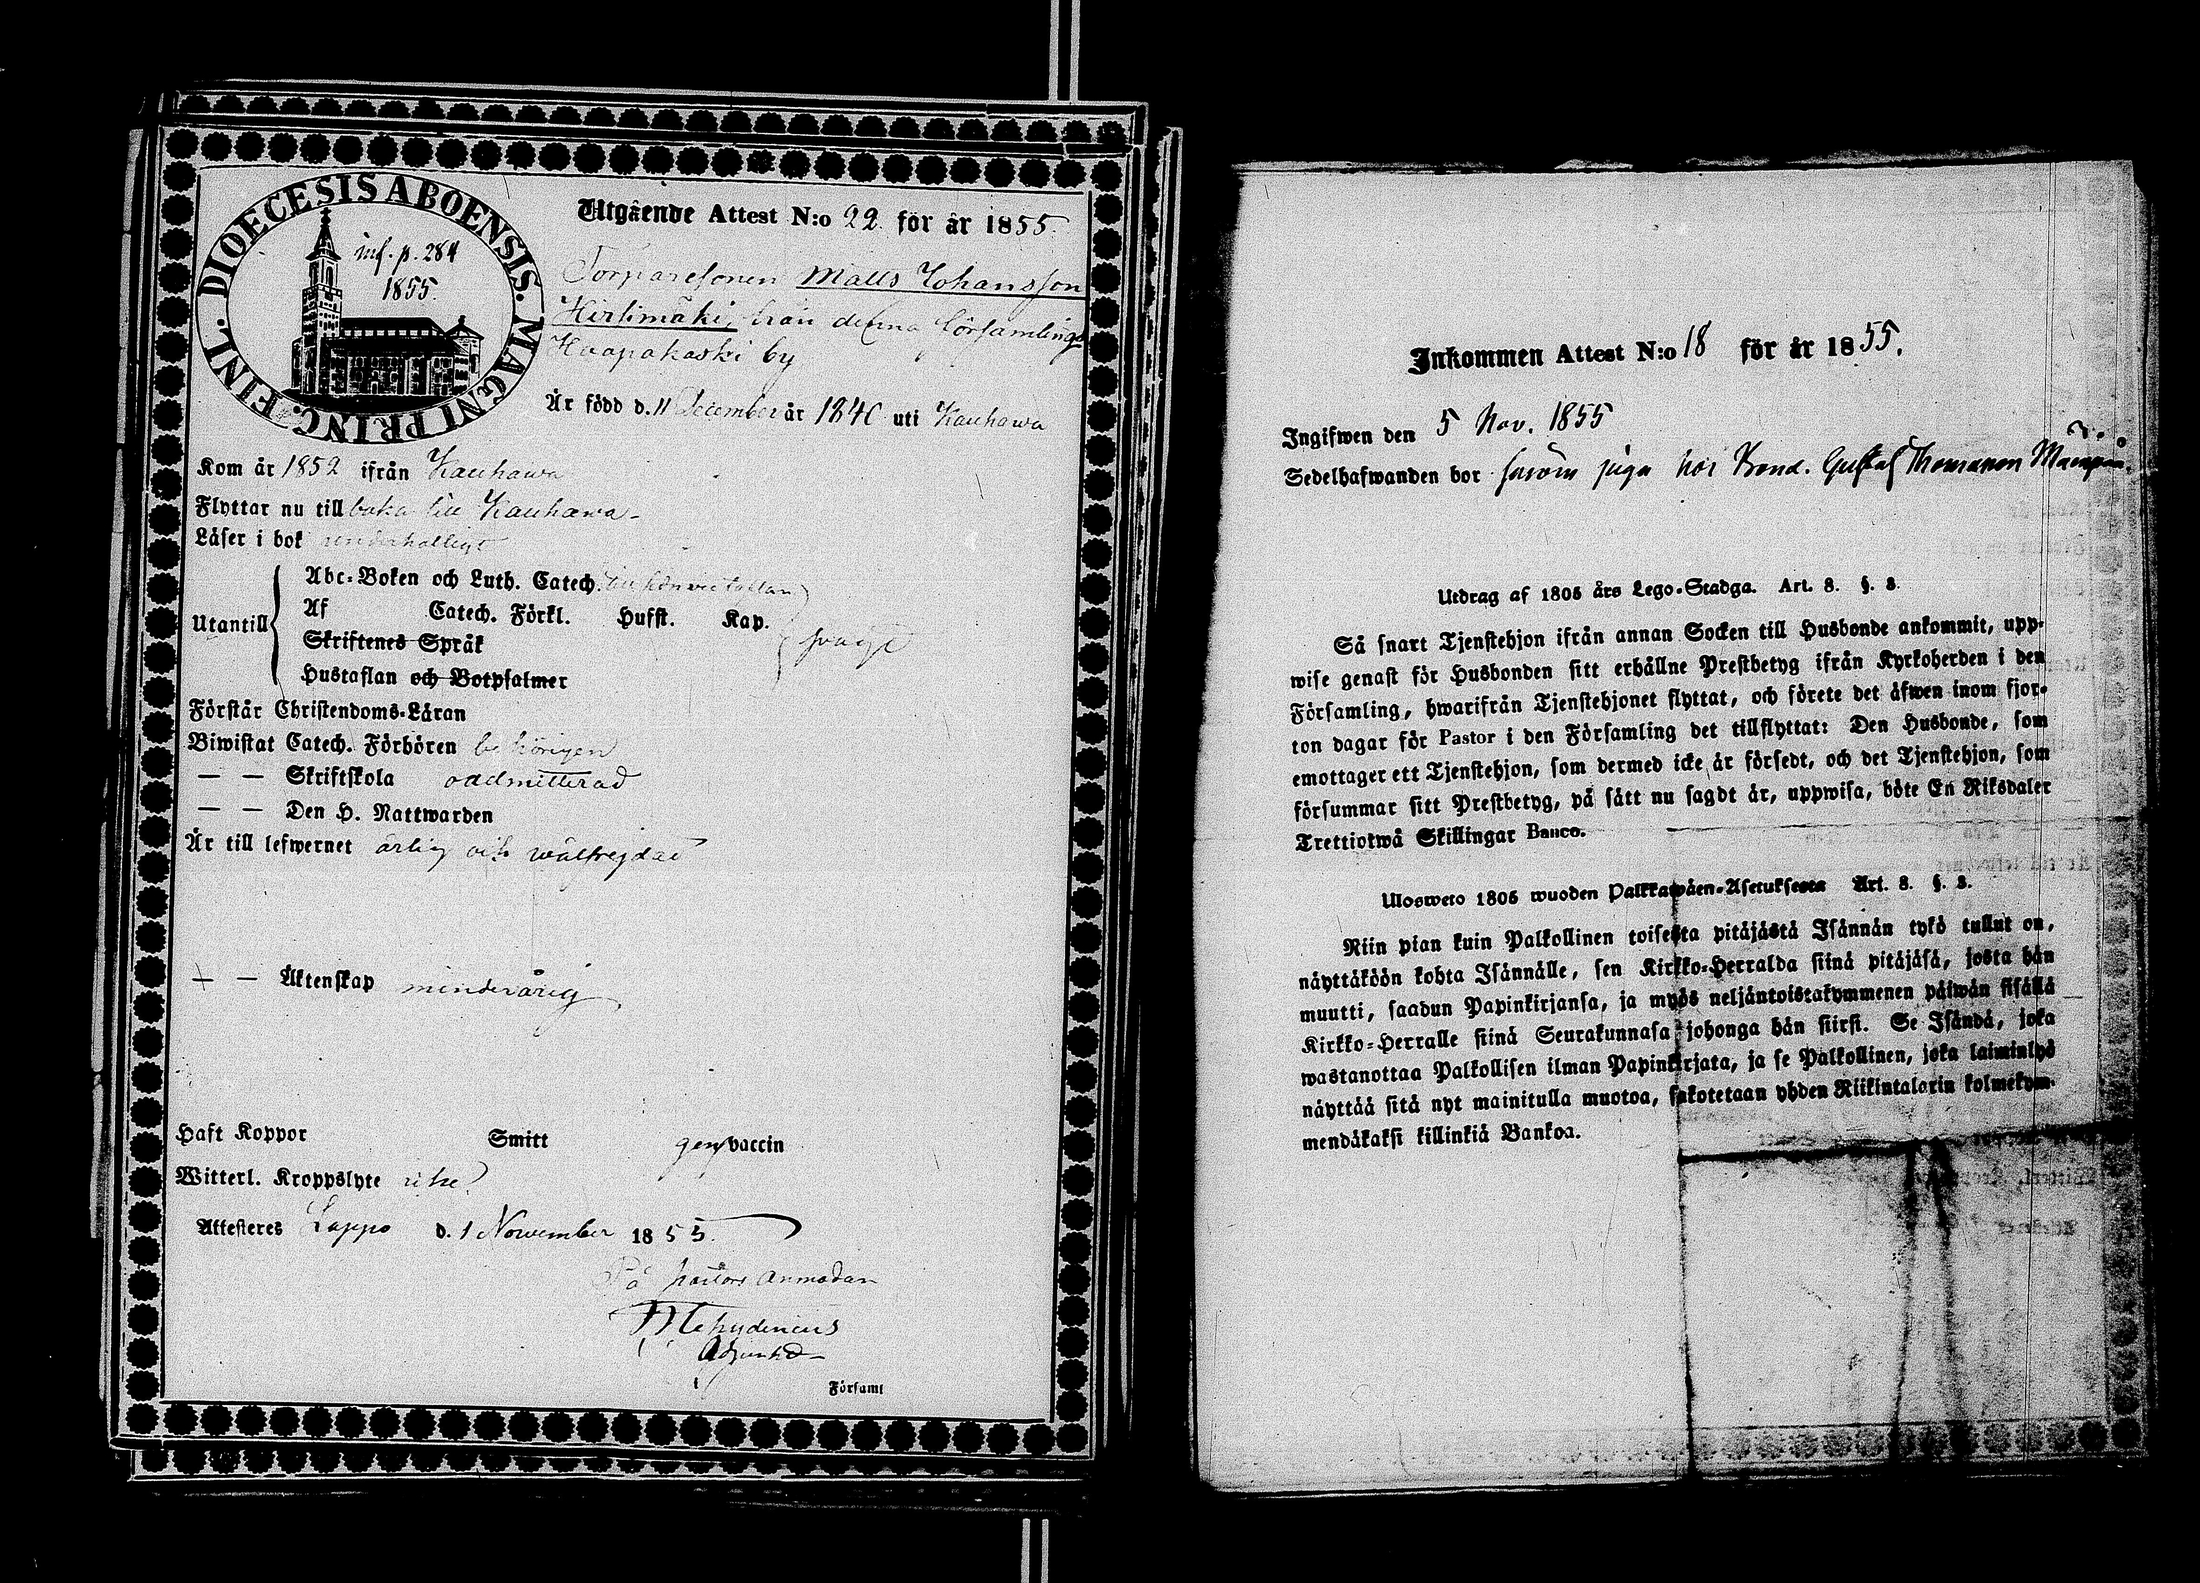 DIOECESIS ABOENSIS. MAGNI PRINC. FINL.
inf. p. 284
1855.
Utgående Attest N:o 22. för år 1855.
Torparesonen Matts Johansson
Hirsimäki, från denna församlings
Haapakoski by
Är född d. 11 December år 1840 uti Kauhawa
Kom år 1852 ifrån Kauhawa
Flyttar nu tillbaka till Kauhawa
Läser i bok
Utantill
Abc-Boken och Luth. Catech.
Af Catech. Förkl. Hufst. Kap.
Skriftenes Språk
svagt
Hustaflan och Botpsalmer
Förstår Christendoms-Läran
Biwistat Catech. Förhören behörigen
— — Skriftskola oadmitterad
— — Den H. Nattwarden
Är till lefwernet ärlig och wälfrejdad
— — Äktenskap minderårig
Haft Koppor Smitt gen. vaccin
Witterl. Kroppslyte icke
Attesteres Lappo d. 1 November 1855.
På pastors anmodan
Adjunkt
Församl
Inkommen Attest N:o 18 för år 1855.
Ingifwen den 5 Nov. 1855
Sedelhafwanden bor såsom piga hos Bond. Gustaf Thomasson
Utdrag af 1805 års Lego-Stadga. Art. 8. §. 3.
Så snart Tjenstehjon ifrån annan Socken till Husbonde ankommit, upp-
wise genast för Husbonden sitt erhållne Prestbetyg ifrån Kyrkoherden i den
Församling, hwarifrån Tjenstehjonet flyttat, och förete det äfwen inom fjor-
ton dagar för Pastor i den Församling det tillflyttat: Den Husbonde, som
emottager ett Tjenstehjon, som dermed icke är försedt, och det Tjenstehjon, som
försummar sitt Prestbetyg, på sätt nu sagdt är, uppwisa, böte En Riksdaler
Trettiotwå Skillingar Banco.
Ulosweto 1805 wuoden Palkkawäen-Asetuksesta Art. 8. §. 3.
Niin pian kuin Palkollinen toisesta pitäjästä Isännän tykö tullut on,
näyttäköön kohta Isännälle, sen Kirkko-Herralda siinä pitäjäsä, josta hän
muutti, saadun Papinkirjansa, ja myös neljäntoistakymmenen päiwän sisällä
Kirkko-Herralle siinä Seurakunnasa johonga hän siirsi. Se Isändä, joka
wastanottaa Palkollisen ilman Papinkirjata, ja se Palkollinen, joka laiminlyö
näyttää sitä nyt mainitulla muotoa, sakotetaan yhden Riikintalarin kolmekym-
mendäkaksi killinkiä Bankoa.